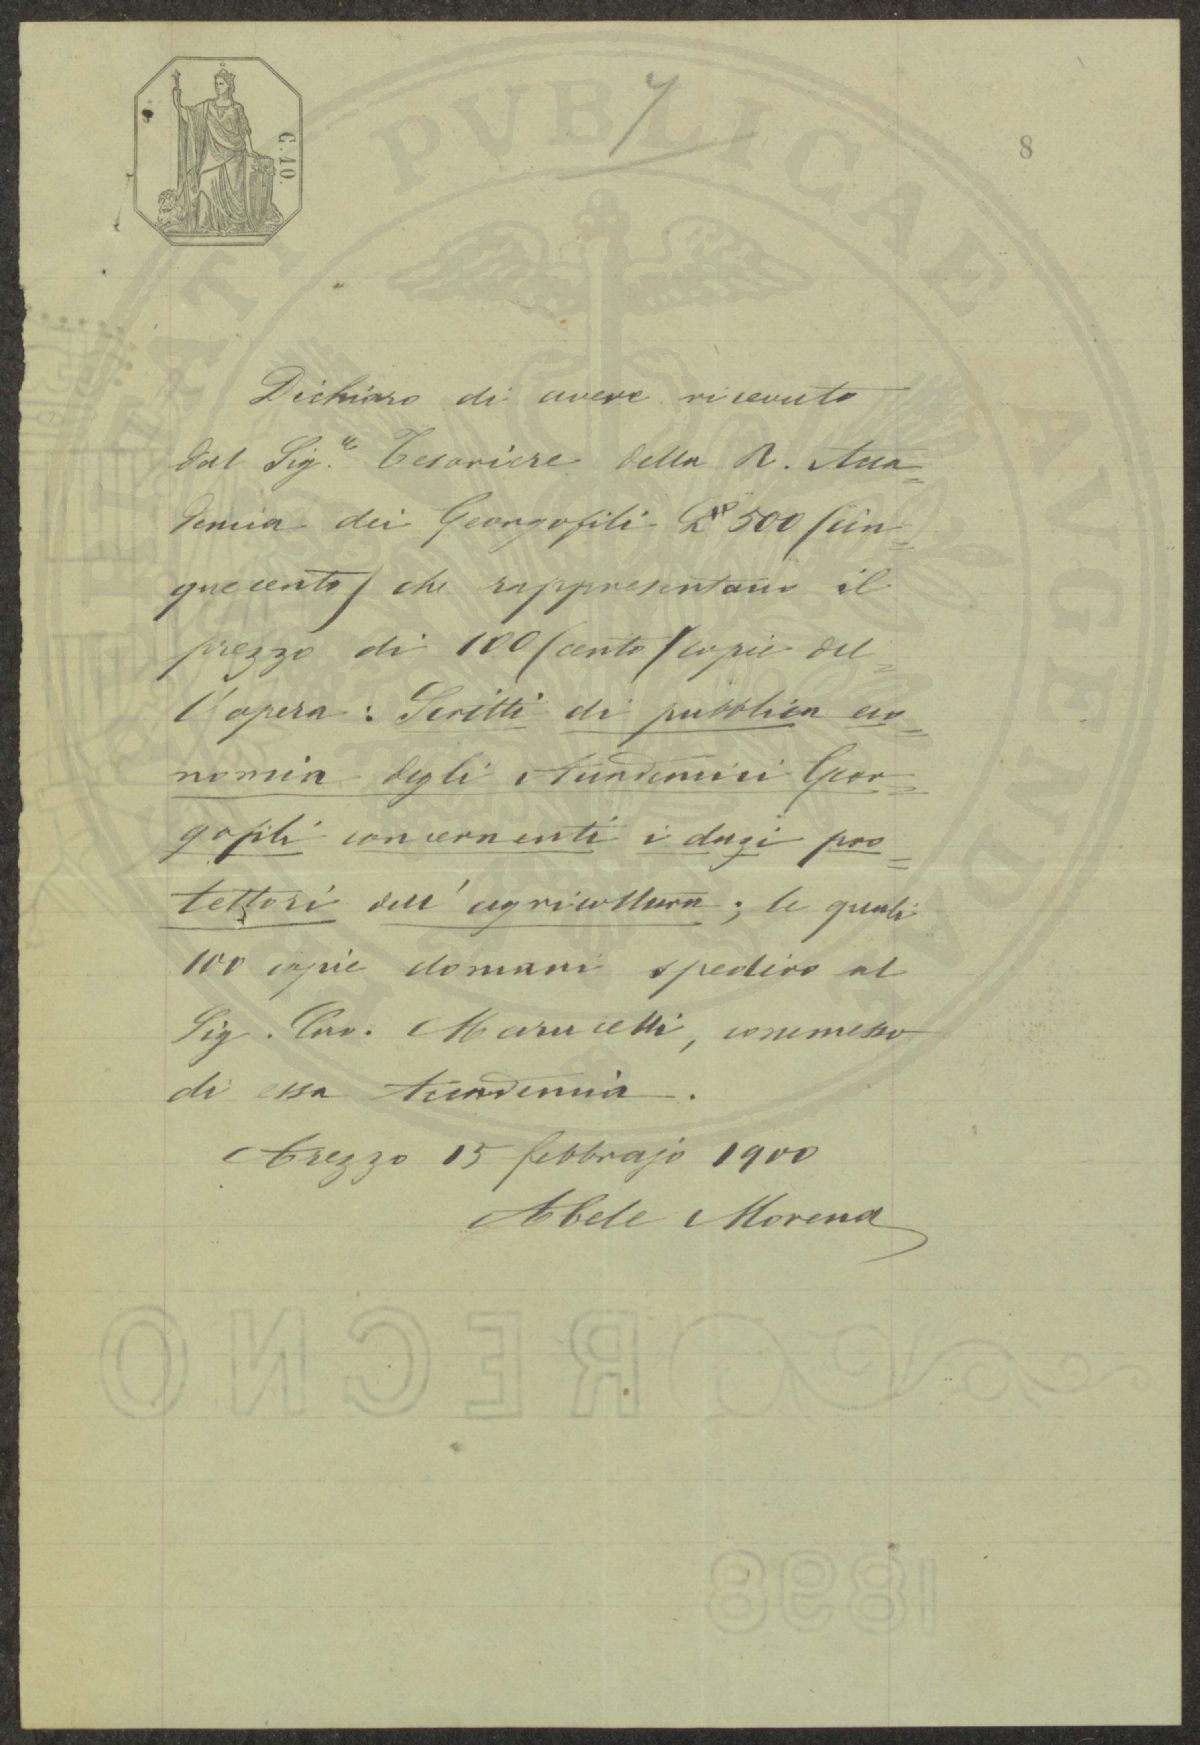 C. 10.
7
8
PVBLICAE
Dichiaro di avere ricevuto
dal Sig.re Tesoriere della R. Acca=
demia dei Georgofili L 500 (cin=
quecento) che rappresentano il
prezzo di 100 (cento) copie del=
l'opera: Scritti di pubblica eco=
nomia degli Accademici Geor=
gofili concernenti i dazi pro=
tettori dell'agricoltura; le quali
100 copie domani spediro al
Sig. Cav. Marucelli, commesso
di essa Accademia.
Arezzo 15 febbrajo 1900
Abele Morena
REGNO
1898